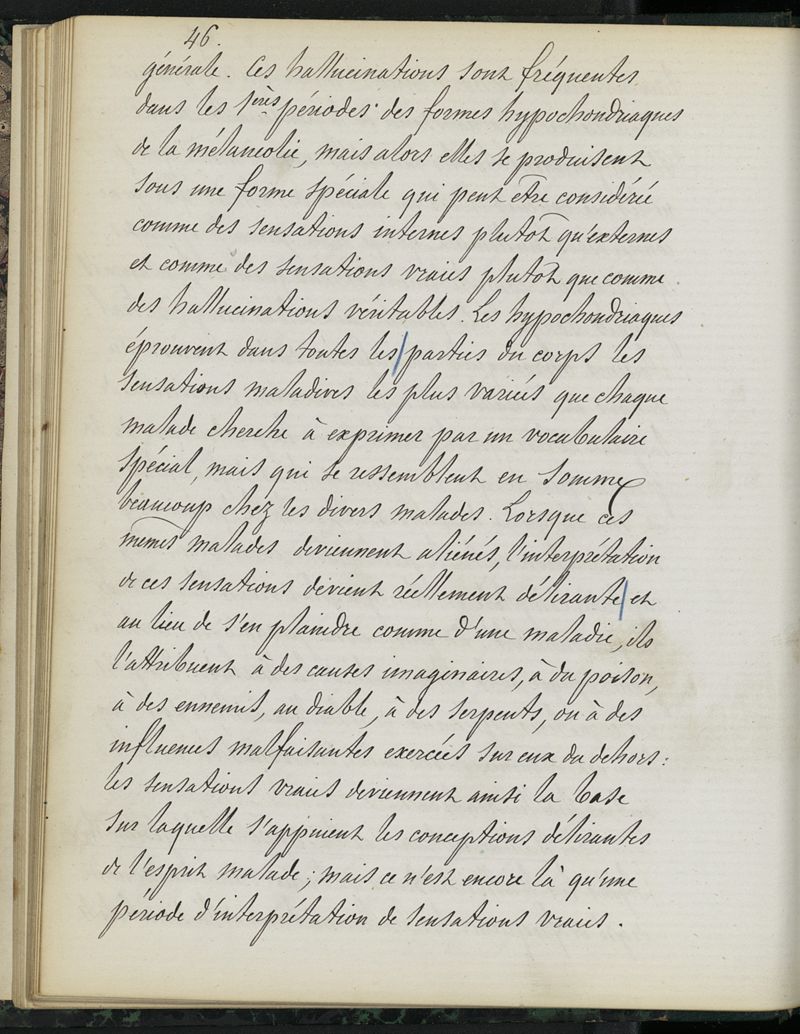 46.
générale. Ces hallucinations sont fréquentes
dans les 1ères périodes des formes hypochondriaques
de la mélancolie, mais alors elles se produisent
sous une forme spéciale qui peut être considérée
comme des sensations internes plutôt qu'externes
et comme des sensations vraies plutôt que comme
des hallucinations véritables. Les hypochondriaques
éprouvent dans toutes les parties du corps les
sensations maladives les plus variées que chaque
malade cherche à exprimer par un vocabulaire
spécial, mais qui se ressemblent en somme
beaucoup chez les divers malades. Lorsque ces
mêmes malades deviennent aliénés, l'interprétation
de ces sensations devient réellement délirante et
au lieu de s'en plaindre comme d'une maladie, ils
l'attribuent à des causes imaginaires, à du poison,
à des ennemis, au diable, à des serpents, ou à des
influences malfaisantes exercées sur eux du dehors :
les sensations vraies deviennent ainsi la base
sur laquelle s'appuient les conceptions délirantes
de l'esprit malade ; mais ce n'est encore là qu'une
période d'interprétation de sensations vraies.